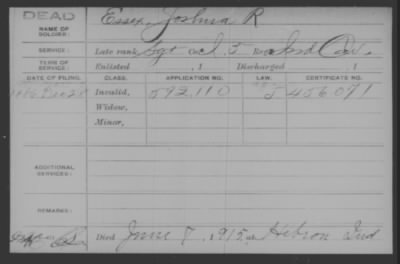 DEAD
NAME OF SOLDIER:
Essex, Joshua R
SERVICE:
Late rank, Sgt Co. I. 5 Reg. Ind Cav.
TERM OF SERVICE:
Enlisted , 1 Discharged , 1
DATE OF FILING. CLASS. APPLICATION NO. LAW. CERTIFICATE NO.
1886 Dec 28 Invalid, 592.110 J 456071
Widow,
Minor,
ADDITIONAL SERVICES:
REMARKS:
Died June 7, 1915, at Hebron Ind.